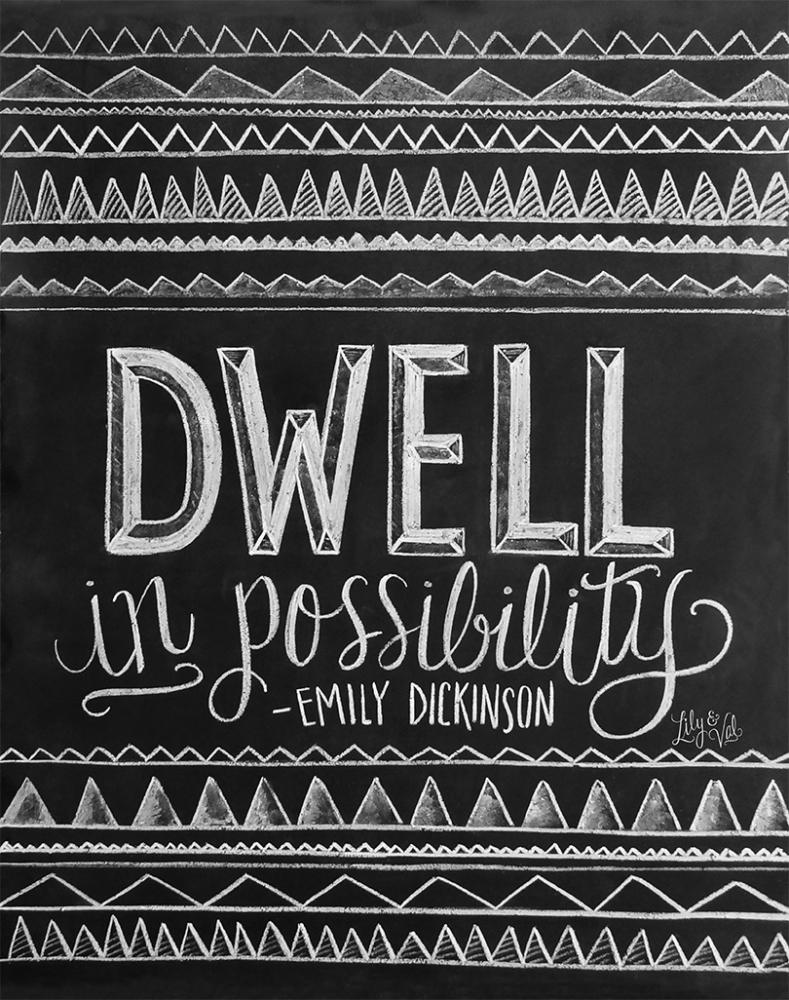 DWELL
in possibility
-EMILY DICKINSON
Lily &
Val